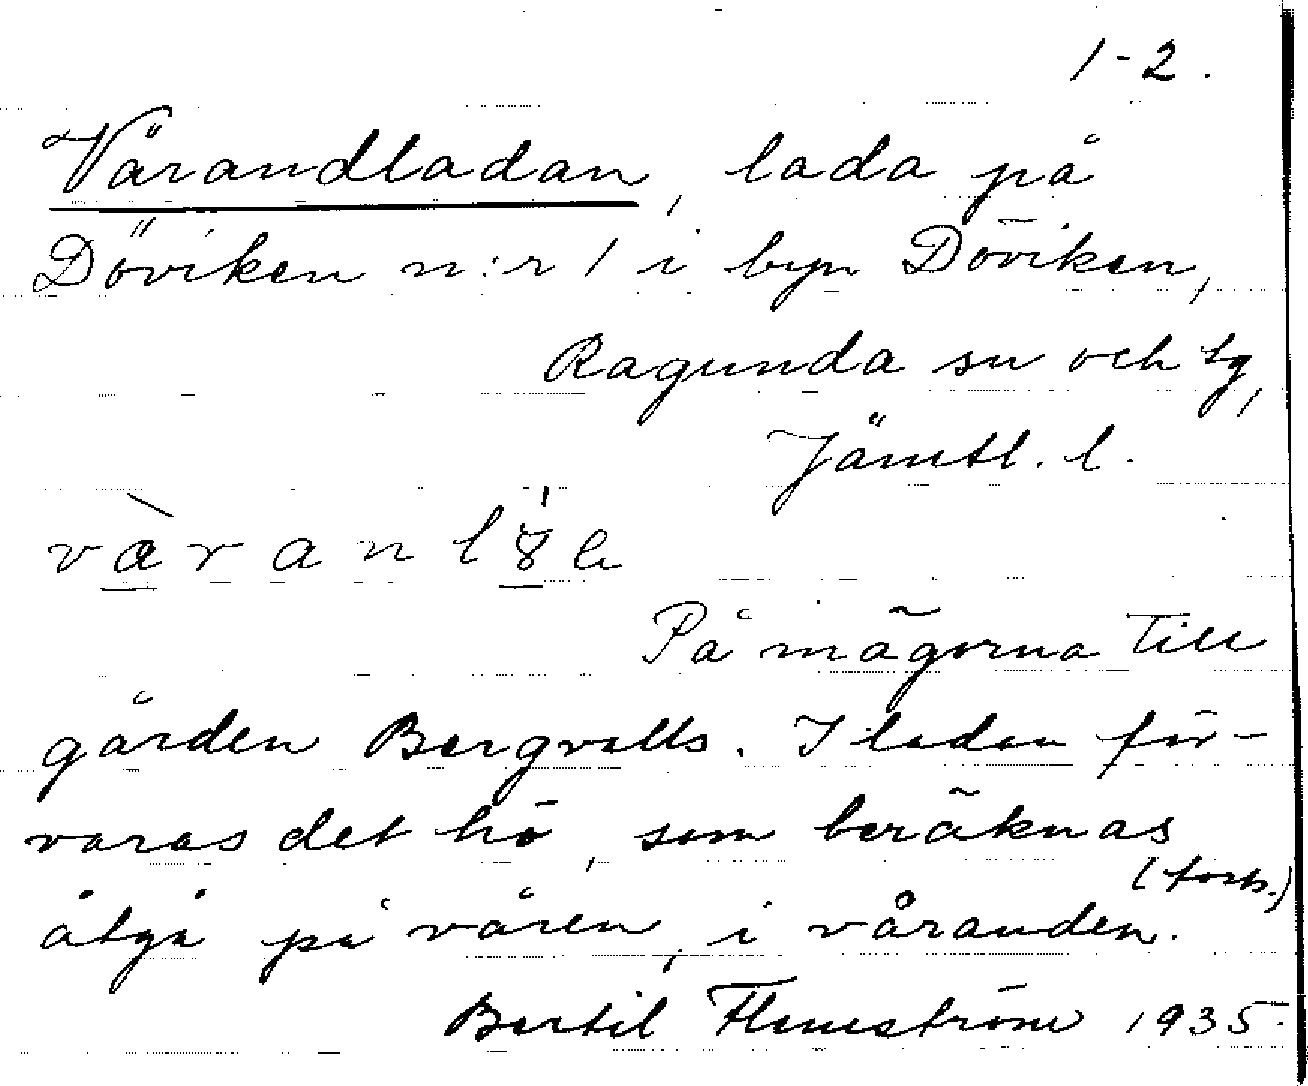 1-2.
Värandladan, lada på
Döviken n:r 1 i byn Döviken,
Ragunda sn och tg,
Jämtl. l.
På mägorna till
gården Bergvalls. I ladan för-
varas det hö, som beräknas
(forts.)
åtgå på våren, i våranden.
Bertil Flemström 1935.